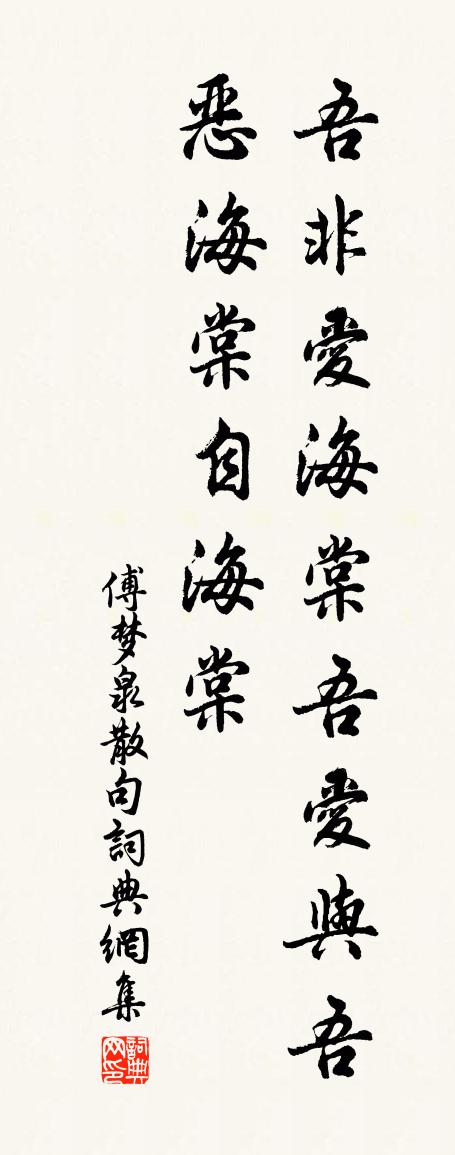 吾非愛海棠吾愛與吾
惡海棠自海棠
傅梦泉散句詞典網集
詞典网印